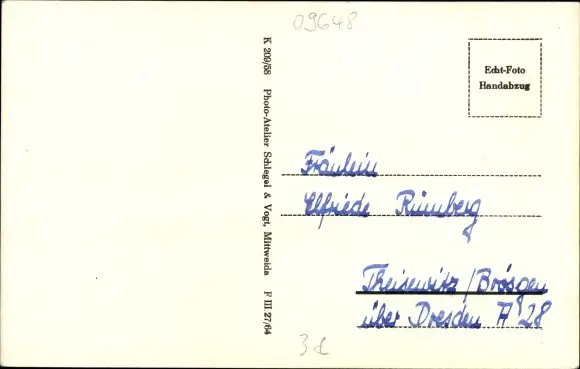 09648
K 209/58 Photo-Atelier Schlegel & Vogt, Mittweida F III 27/64
Echt-Foto
Handabzug
Fräulein
Elfriede Rümberg
Theisewitz / Brösgen
über Dresden A 28